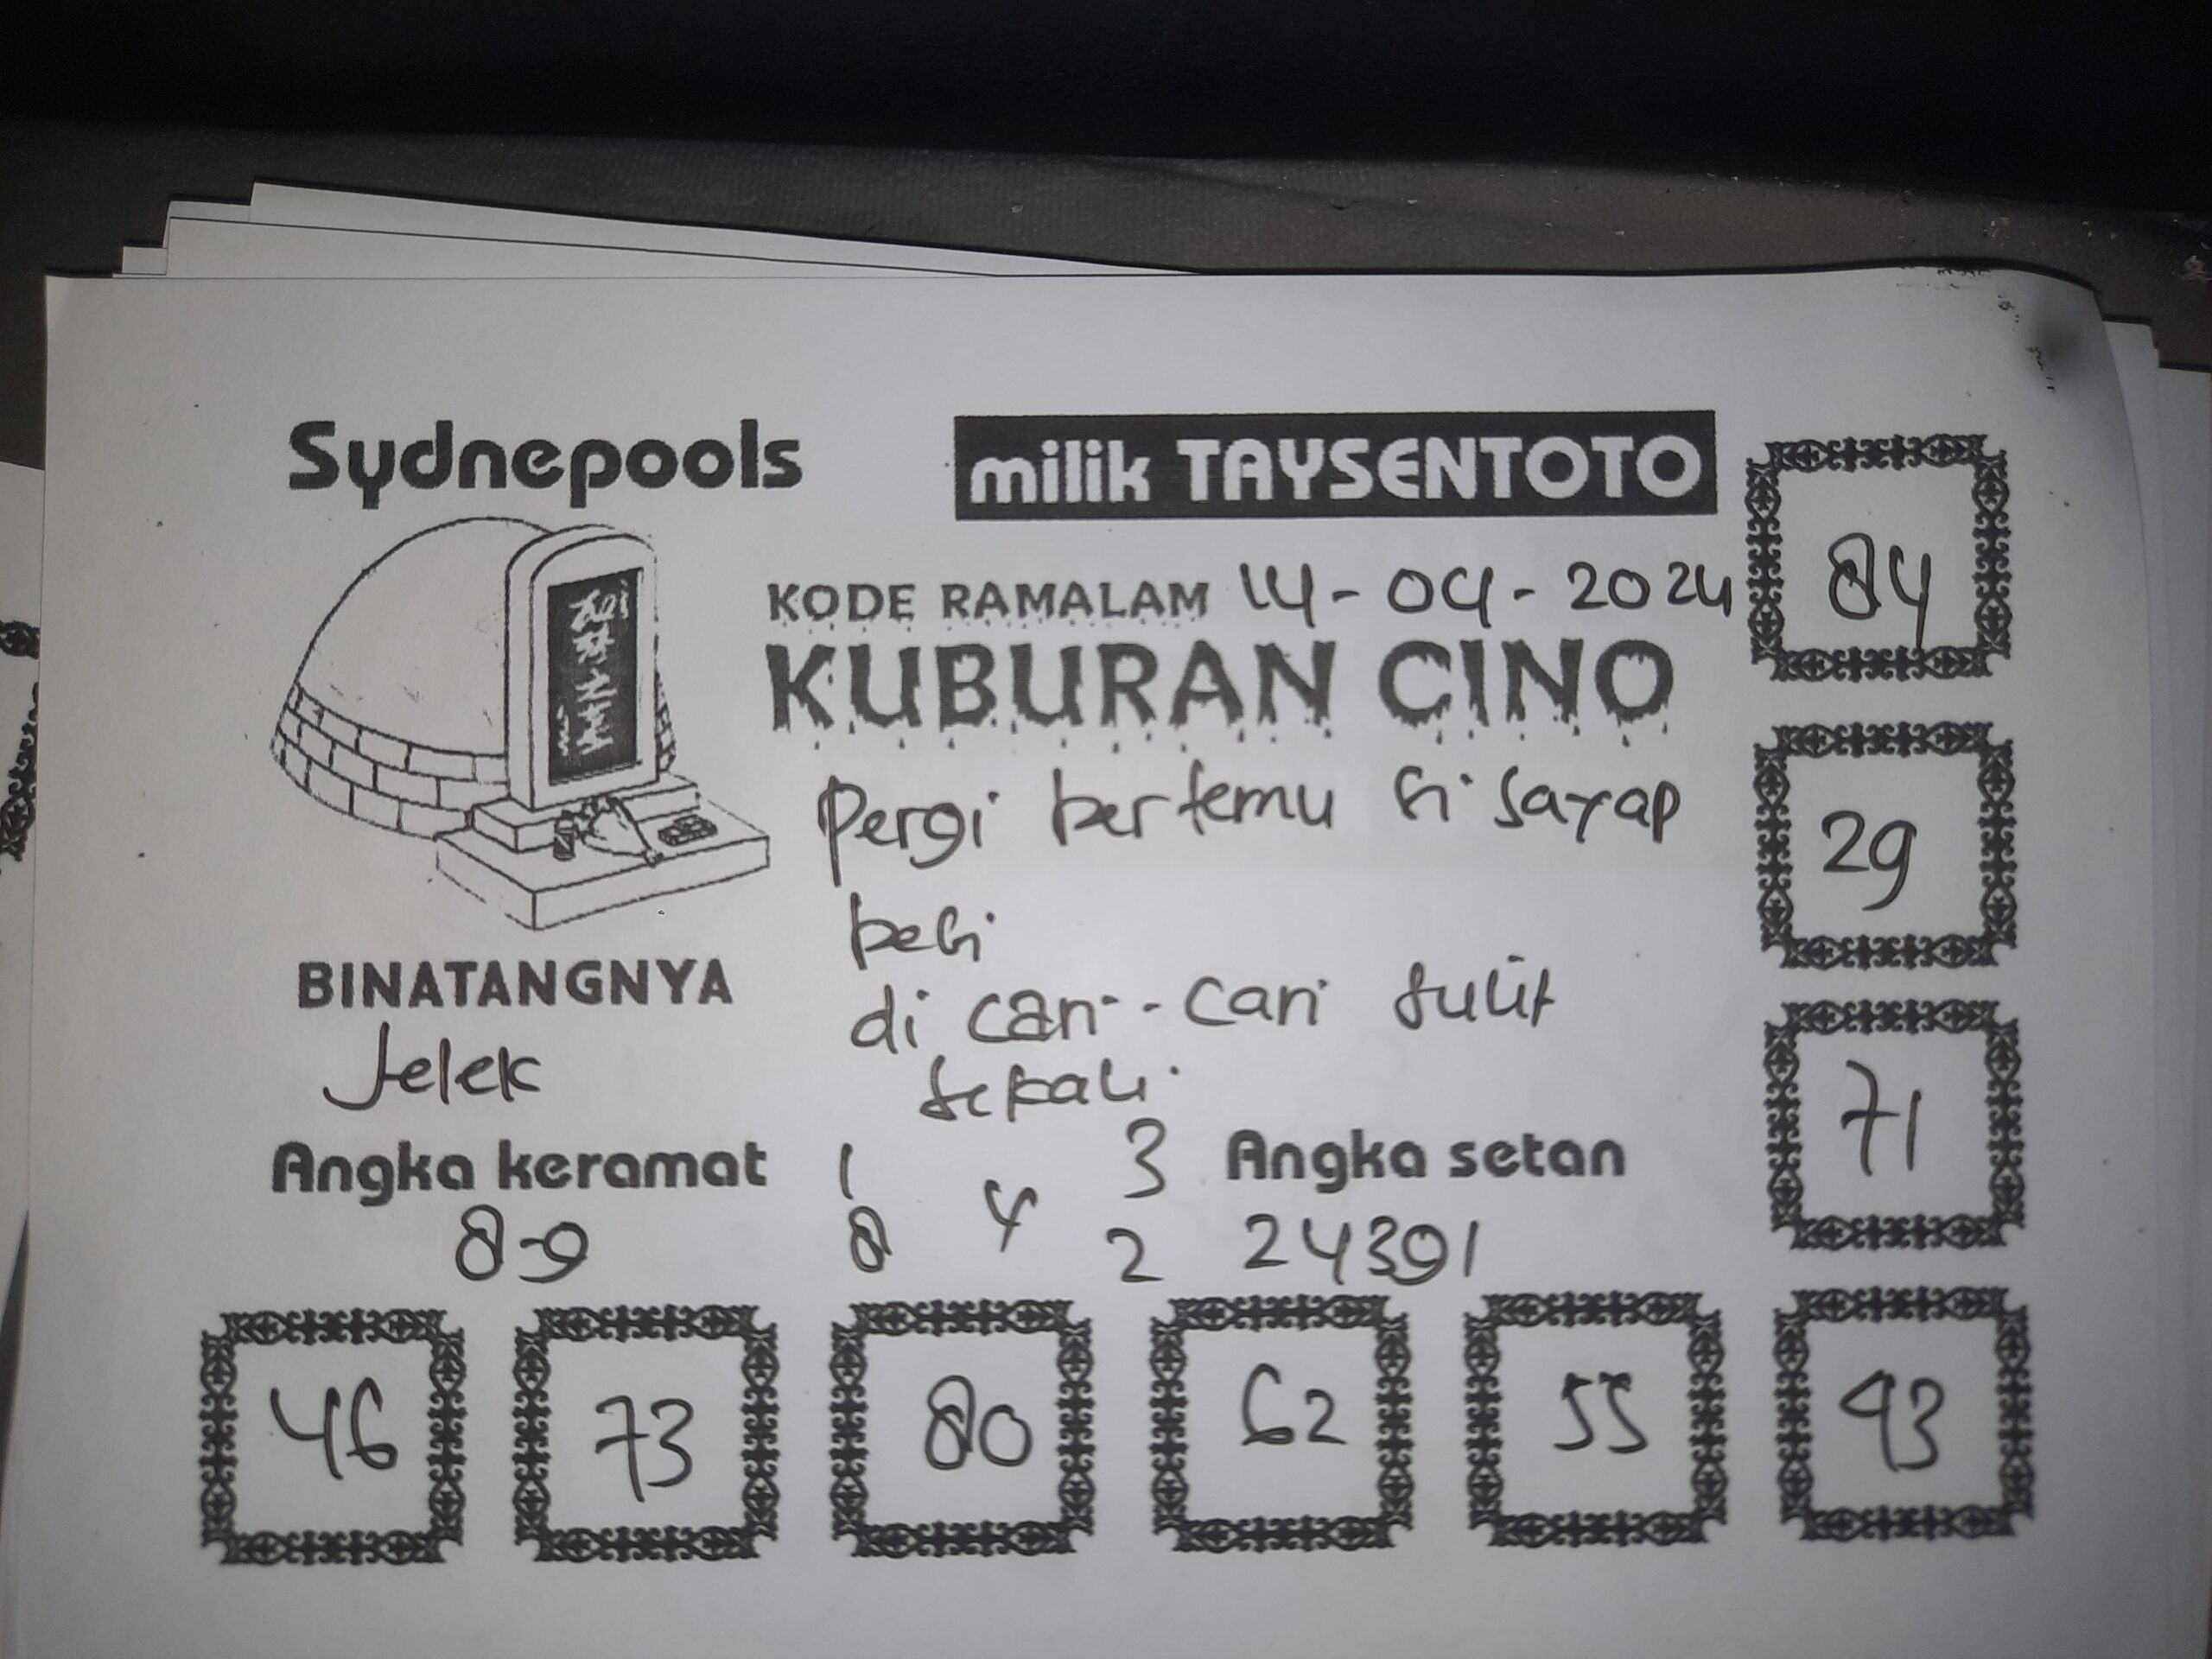 Sydnepools
milik TAYSENTOTO
KODE RAMALAM 14-04-2024
KUBURAN CINO
Pergi bertemu si sayap
besi
di cari-cari sulit
sekali
BINATANGNYA
Jelek
Angka keramat
8-9
1 3
4
8 2
Angka setan
24391
84
29
71
46 73 80 62 55 93